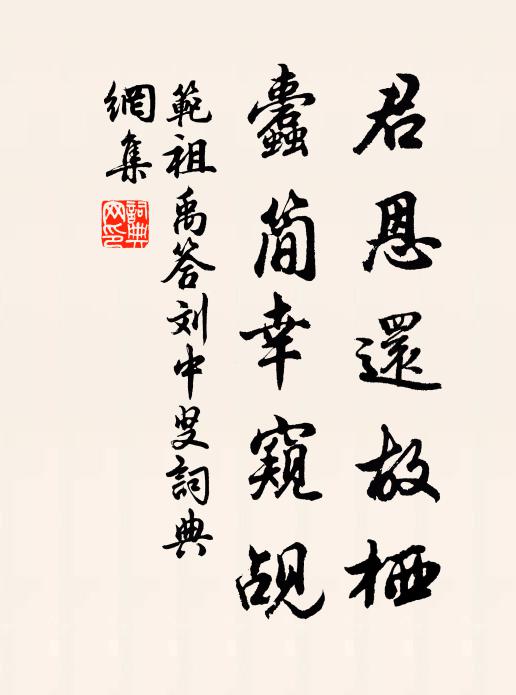 君恩還故栖
蠹簡幸窺觇
範祖禹答刘中叟詞典
網集
詞典
网印